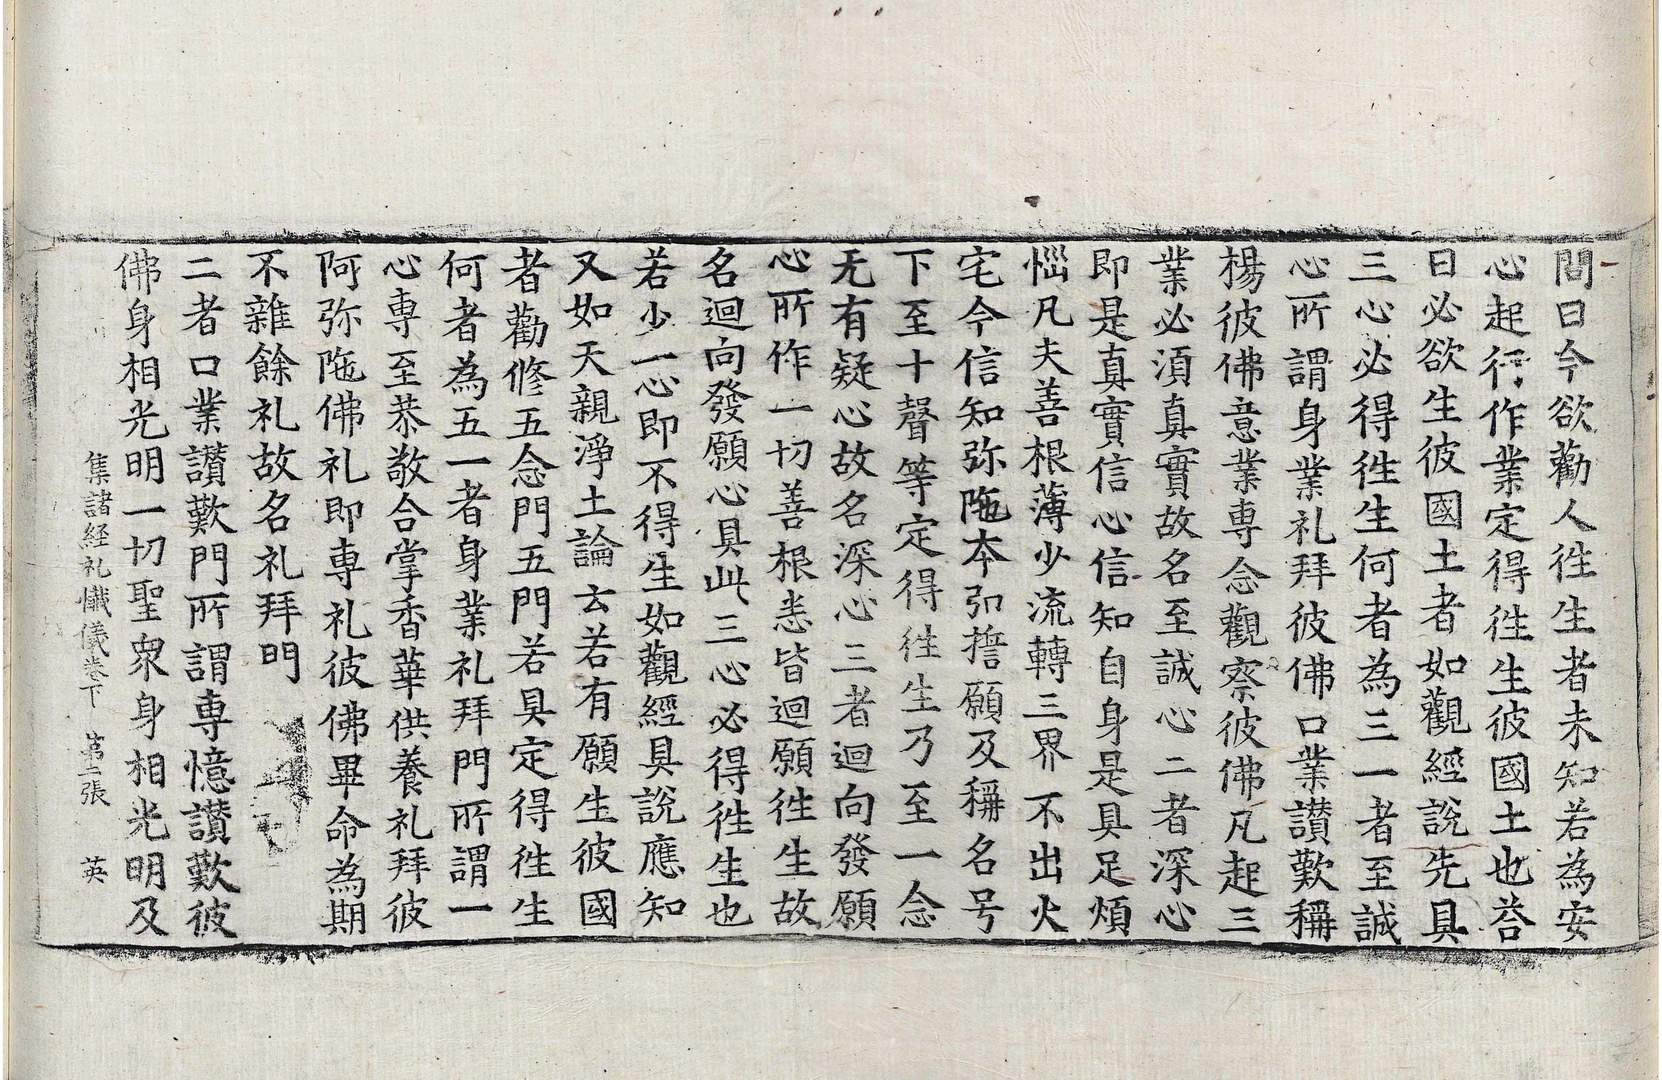 問曰今欲勸人徃生者未知若為安
心起行作業定得徃生彼國土也荅
曰必欲生彼國土者如觀經說先具
三心必得徃生何者為三一者至誠
心所謂身業礼拜彼佛口業讃歎稱
揚彼佛意業專念觀察彼佛凡起三
業必湏真實故名至誠心二者深心
即是真實信心信知自身是具足煩
惱凡夫善根薄少流轉三界不出火
宅今信知弥陁本弘誓願及稱名号
下至十聲等定得徃生乃至一念
无有疑心故名深心三者迴向發願
心所作一切善根悉皆迴願徃生故
名迴向發願心具此三心必得徃生也
若少一心即不得生如觀經具說應知
又如天親淨土論云若有願生彼國
者勸修五念門五門若具定得徃生
何者為五一者身業礼拜門所謂一
心專至恭敬合掌香華供養礼拜彼
阿弥陁佛礼即專礼彼佛畢命為期
不雜餘礼故名礼拜門
二者口業讃歎門所謂專憶讃歎彼
佛身相光明一切聖衆身相光明及
集諸経礼懺儀卷下 第二張 英